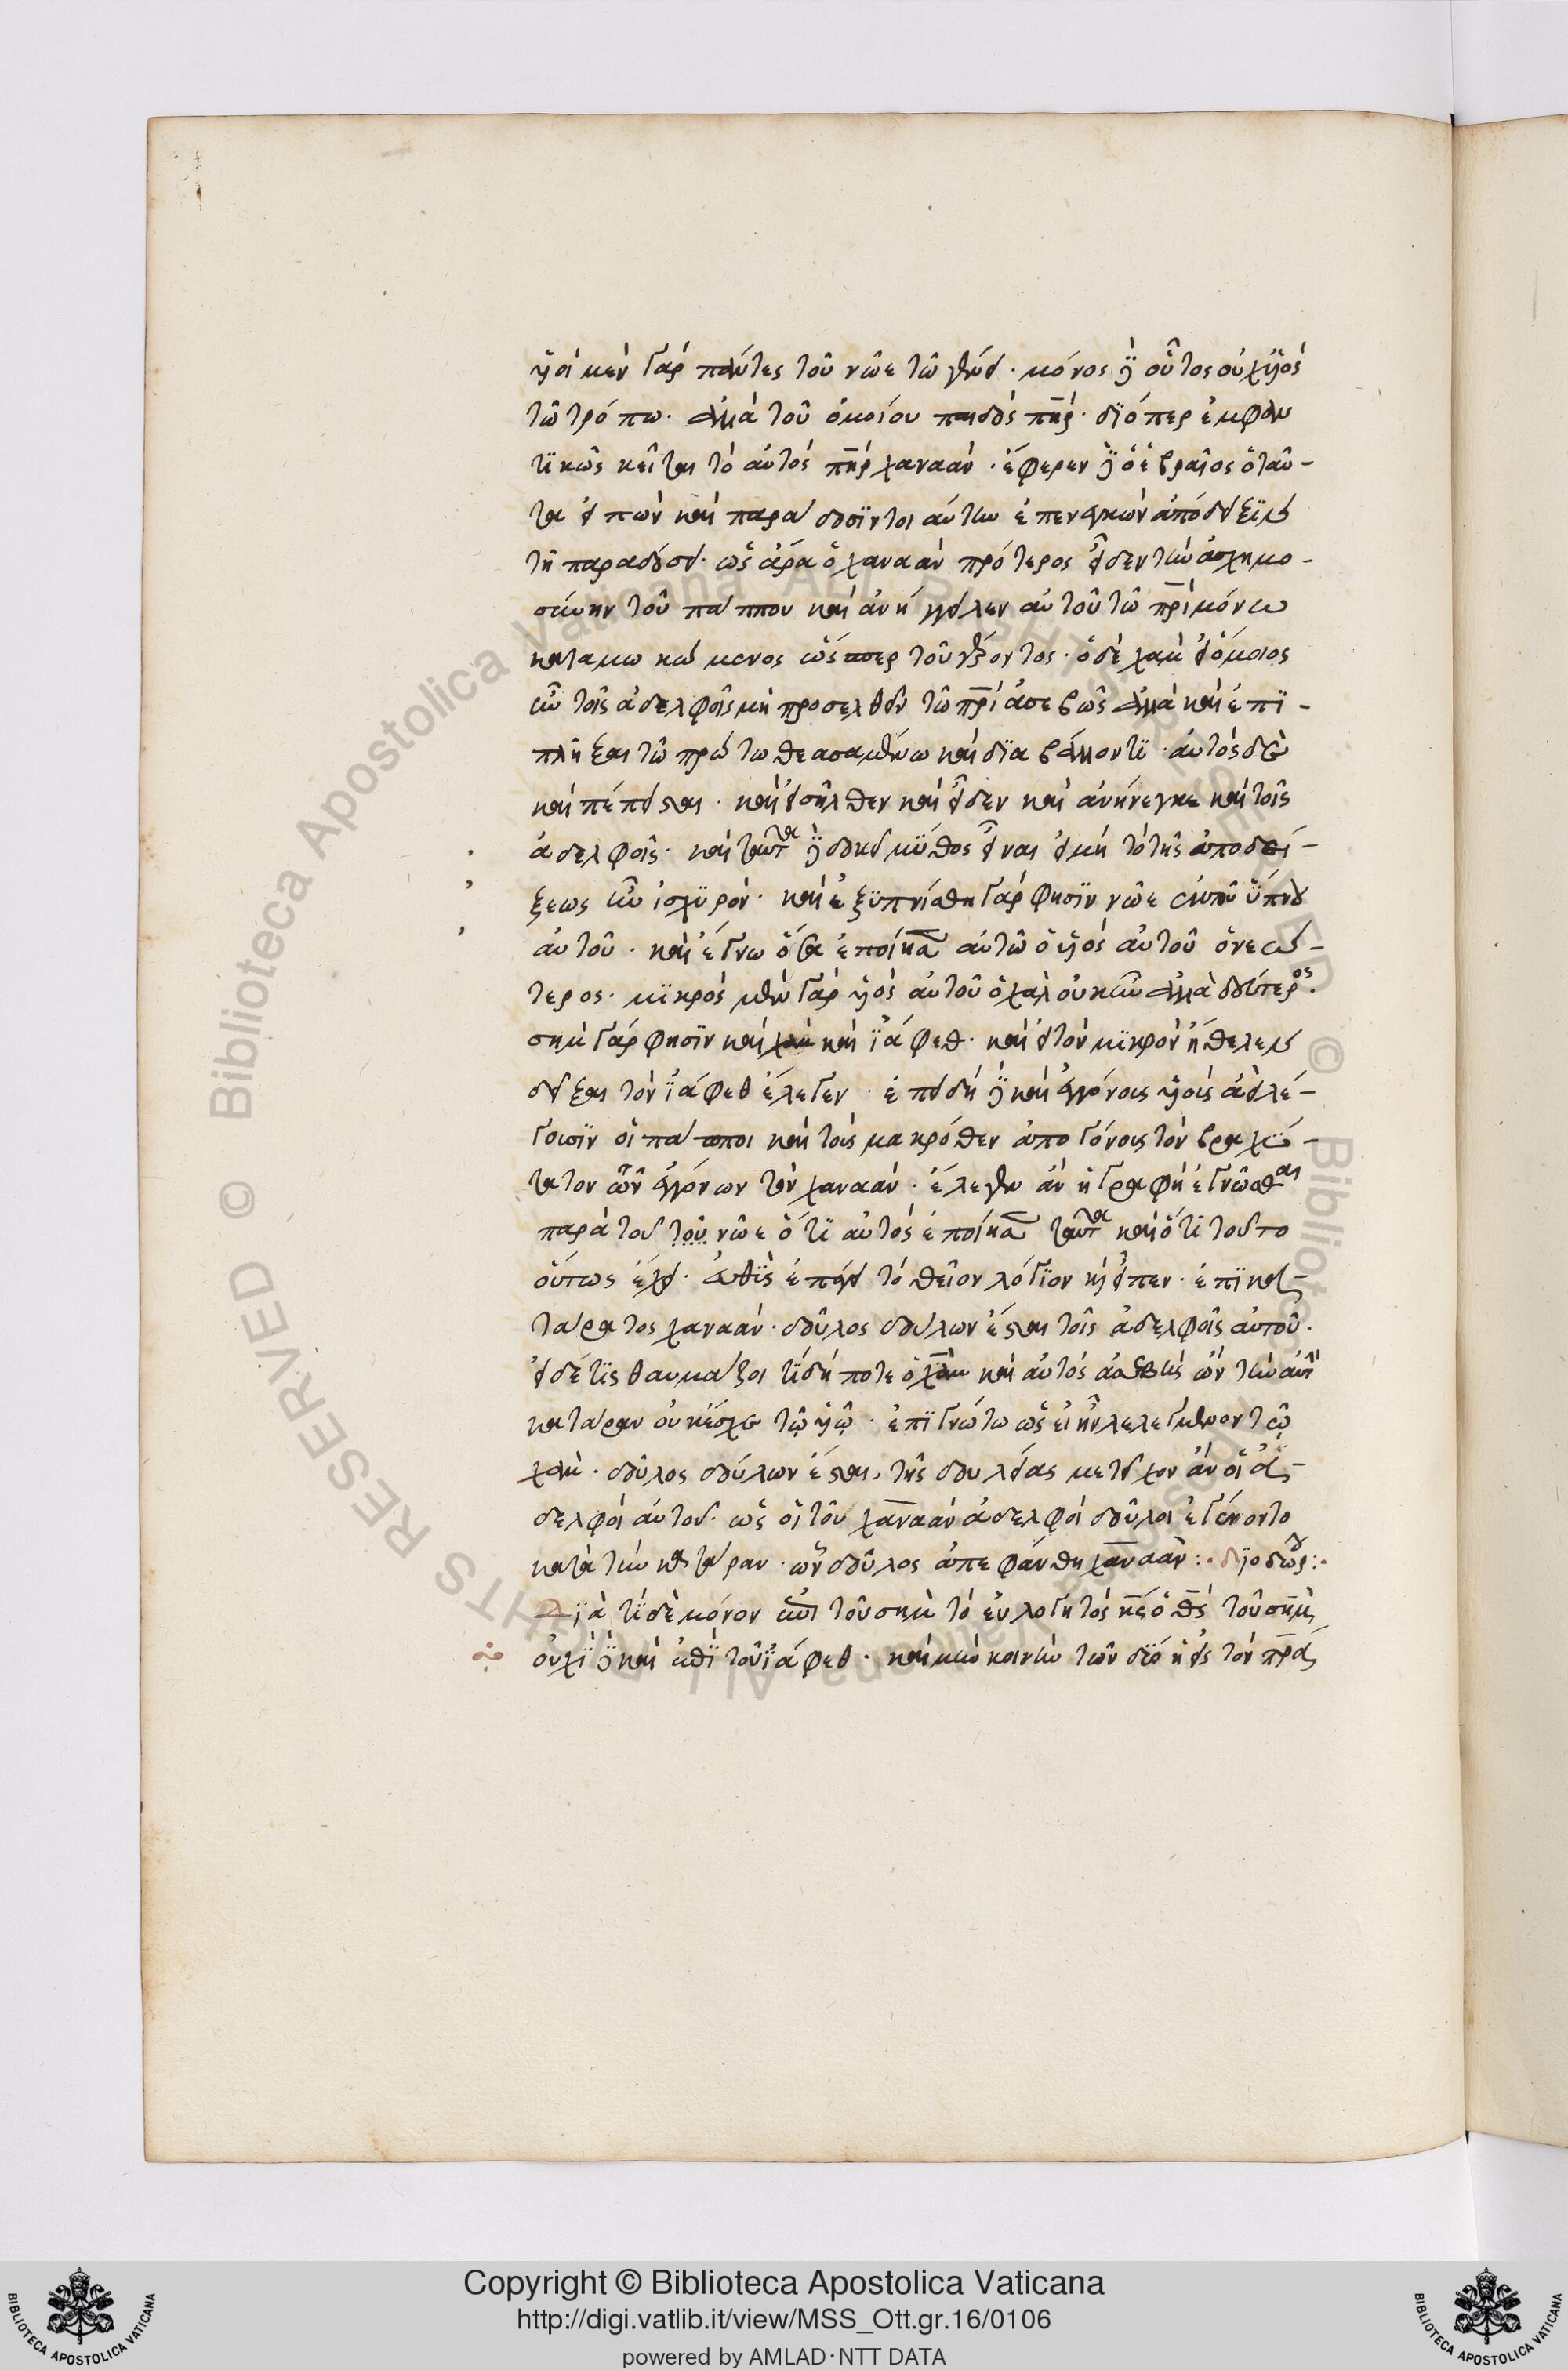 ϋἱοὶ μὲν γὰρ πάντες τοῦ νῶε τῷ γένει · μόνος δὲ οὗτος οὐχ υἱὸς
τῶ τρόπω · ἀλλὰ τοῦ ὁμοίου παιδὸς πη̅ρ · διόπερ ἐμφαν
τικῶς κεῖται τὸ αὐτὸς πη̅ρ χαναάν · ἔφερεν δὲ ὁ ἑβραῖος ὁ ταῦ-
τα εἰπὼν καὶ παραδοῦναι αὐτὴν ἐπενεγκὼν ἀπόδειξιν
τῆ παραδόσει · ὡς ἄρα ὁ χαναὰν πρότερος εἶδεν τὴν ἀσχημο-
σύνην τοῦ πάππου καὶ ἀνήγγειλεν αὐτοῦ τῶ πρ̅ὶ μόνω
καταμωκώμενος ὥσπερ τοῦ γέροντος · ὁ δὲ χὰμ εἰ ὅμοιος
ἦν τοῖς ἀδελφοῖς μὴ προσελθεῖν τῶ πρ̅ὶ ἀσεβῶς ἀλλὰ καὶ ἐπι-
πλῆξαι τῶ πρώτω θεασαμένω καὶ διαβάλλοντι · αὐτὸς δὲ
καὶ πέπεισται · καὶ εἰσῆλθεν καὶ εἶδεν καὶ ἀνήνεγκε καὶ τοῖς
ἀδελφοῖς · καὶ ταῦτα δὲ δοκεῖ μῦθος εἶναι εἰ μὴ τὸ τῆς ἀποδεί-
ξεως ἦν ἰσχυρόν · καὶ ἐξυπνίσθη γὰρ φησὶν νῶε ἀπὸ τοῦ ὕπνου
αὐτοῦ · καὶ ἔγνω ὅσα ἐποίησεν αὐτῶ ὁ υἱὸς αὐτοῦ ὁ νεώ-
τερος · μικρὸς μὲν γὰρ υἱὸς αὐτοῦ ὁ χὰμ οὐκ ἦν ἀλλὰ δεύτερος .
σὴμ γάρ φησιν καὶ χὰμ καὶ ϊάφεθ · καὶ εἰ τὸν μικρὸν ἤθελεν
δεῖξαι τὸν ϊάφεθ ἔλεγεν · ἐπειδὴ δὲ καὶ ἐγγόνοις υἱοὶς ἀεὶ λέ-
γουσιν οἱ πάπποι καὶ τοῖς μακρόθεν ἀπογόνοις τὸν βραχύ-
τατον τῶν ἐγγόνων τὸν χαναάν · ἔλεγεν ἂν ἡ γραφὴ ἐγνῶσθαι
παρὰ τοῦ τοῦ νῶε ὅτι αὐτὸς ἐποίησεν ταῦτα καὶ ὅτι τοῦτο
οὕτως ἔχει · εὐθὺς ἐπάγει τὸ θεῖον λόγιον καὶ εἶπεν · ἐπικα-
τάρατος χαναάν · δοῦλος δούλων ἔσται τοῖς ἀδελφοῖς αὐτοῦ .
εἰ δέ τις θαυμάζοι τί δήποτε ὁ χὰμ καὶ αὐτὸς ἀσεβὴς ὢν τὴν αὐτὴν
κατάραν οὐκ ἔσχε τῷ υἱῷ · ἐπιγνώτω ὡς εἰ ἦν λελεγμένον τῷ
χάμ · δοῦλος δούλων ἔσται, τῆς δουλείας μετεῖχον ἂν οἱ ἀ-
δελφοὶ αὐτοῦ · ὡς οἱ τοῦ χαναὰν ἀδελφοὶ δοῦλοι ἐγένοντο
κατὰ τὴν κατάραν · ὧν δοῦλος ἀπεφάνθη χαναάν : · διοδώρου : ·
Διὰ τί δὲ μόνον ἐπὶ τοῦ σὴμ τὸ εὐλογητὸς κ̅ς ὁ θ̅ς τοῦ σὴμ,
οὐχὶ δὲ καὶ ἐπὶ τοῦ ϊάφεθ · καὶ μὴν κοινὴν τῶν δύο ἡ εἰς τὸν πρ̅α
Copyright © Biblioteca Apostolica Vaticana
http://digi.vatlib.it/view/MSS_Ott.gr.16/0106
powered by AMLAD·NTT DATA